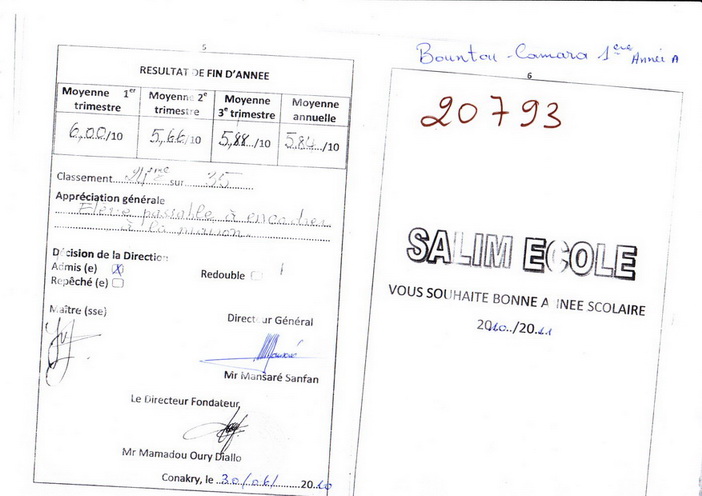 5
RESULTAT DE FIN D'ANNEE
Moyenne 1er trimestre
Moyenne 2e trimestre
Moyenne 3e trimestre
Moyenne annuelle
6,00/10
5,66/10
5,88/10
5.84/10
Classement 21ème sur 35
Appréciation générale
Elève passable à encadrer
à la maison
Décision de la Direction
Admis (e) X
Redouble
Repêché (e)
Maître (sse)
Directeur Général
Mr Mansaré Sanfan
Le Directeur Fondateur
Mr Mamadou Oury Diallo
Conakry, le 30/06/ 2010
Bountou Camara 1ère Année A
6
20793
SALIM ECOLE
VOUS SOUHAITE BONNE ANNEE SCOLAIRE
2010../20.11